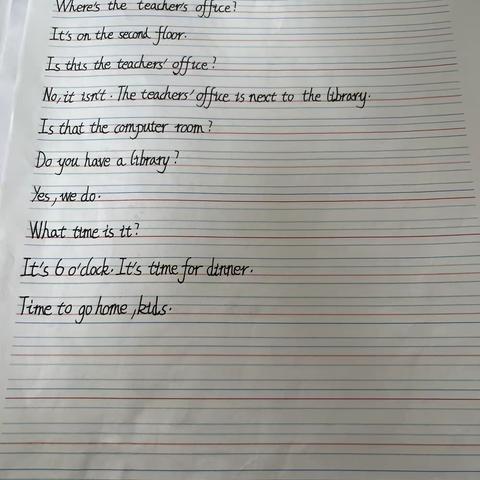 Where's the teacher's office?
It's on the second floor.
Is this the teachers' office?
No, it isn't. The teachers' office is next to the library.
Is that the computer room?
Do you have a library?
Yes, we do.
What time is it?
It's 6 o'clock. It's time for dinner.
Time to go home, kids.